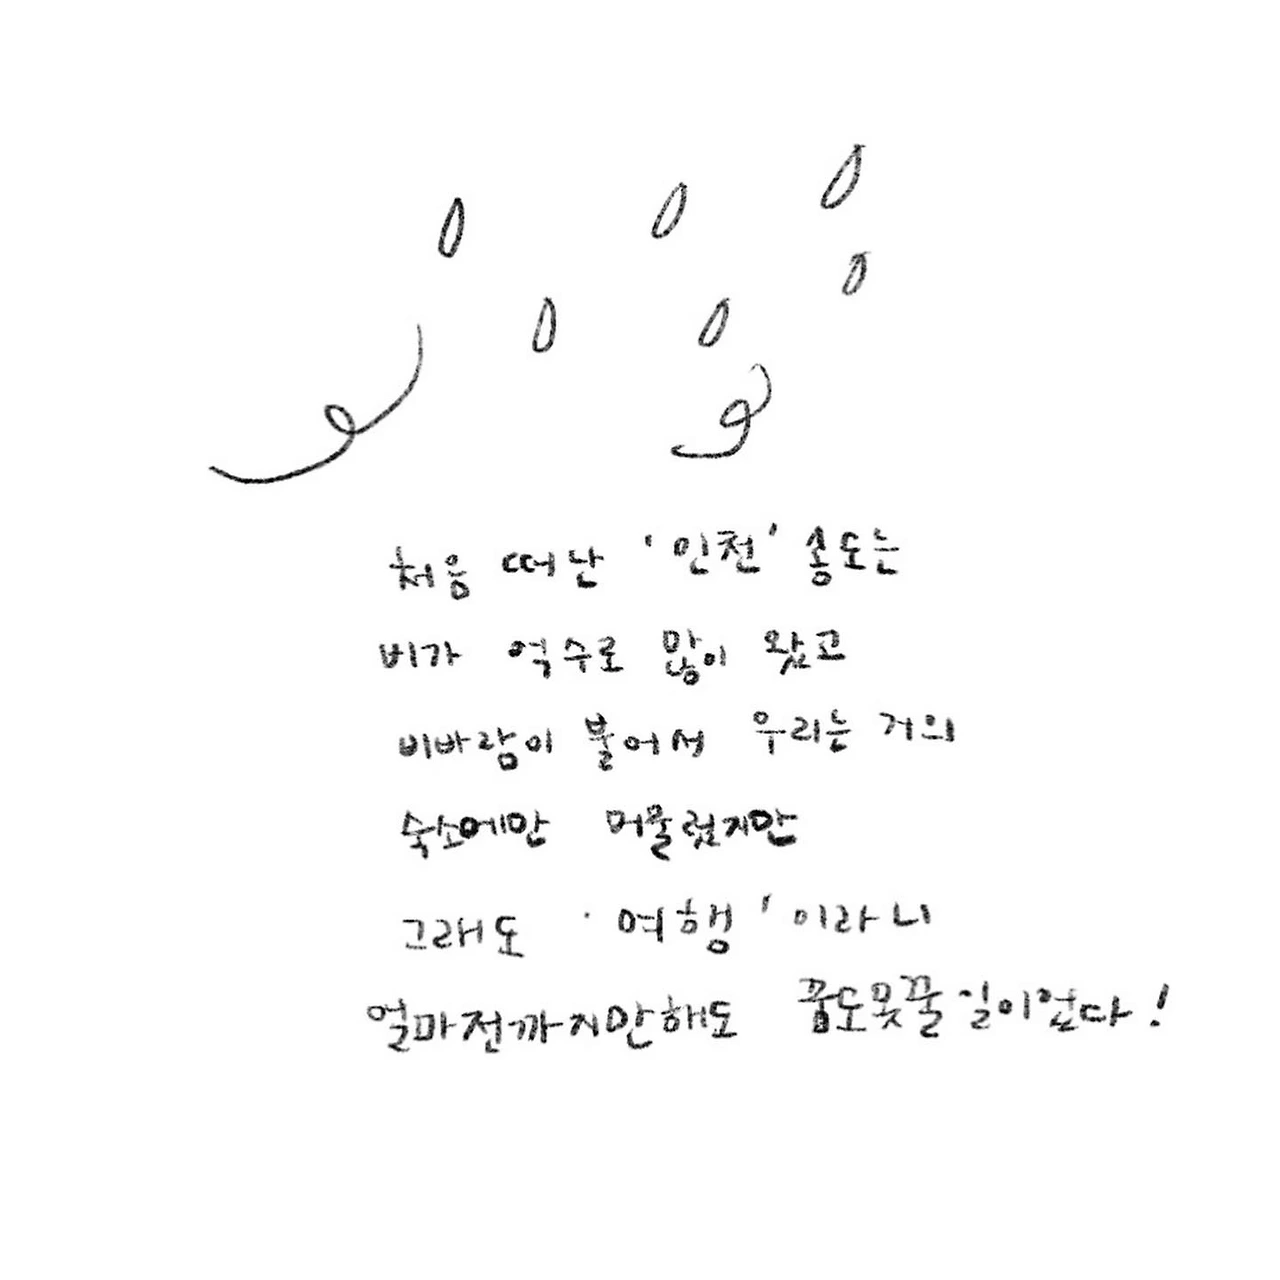 처음 떠난 '인천' 송도는
비가 억수로 많이 왔고
비바람이 불어서 우리는 거의
숙소에만 머물렀지만
그래도 '여행'이라니
얼마전까지만해도 꿈도못꿀일이었다!